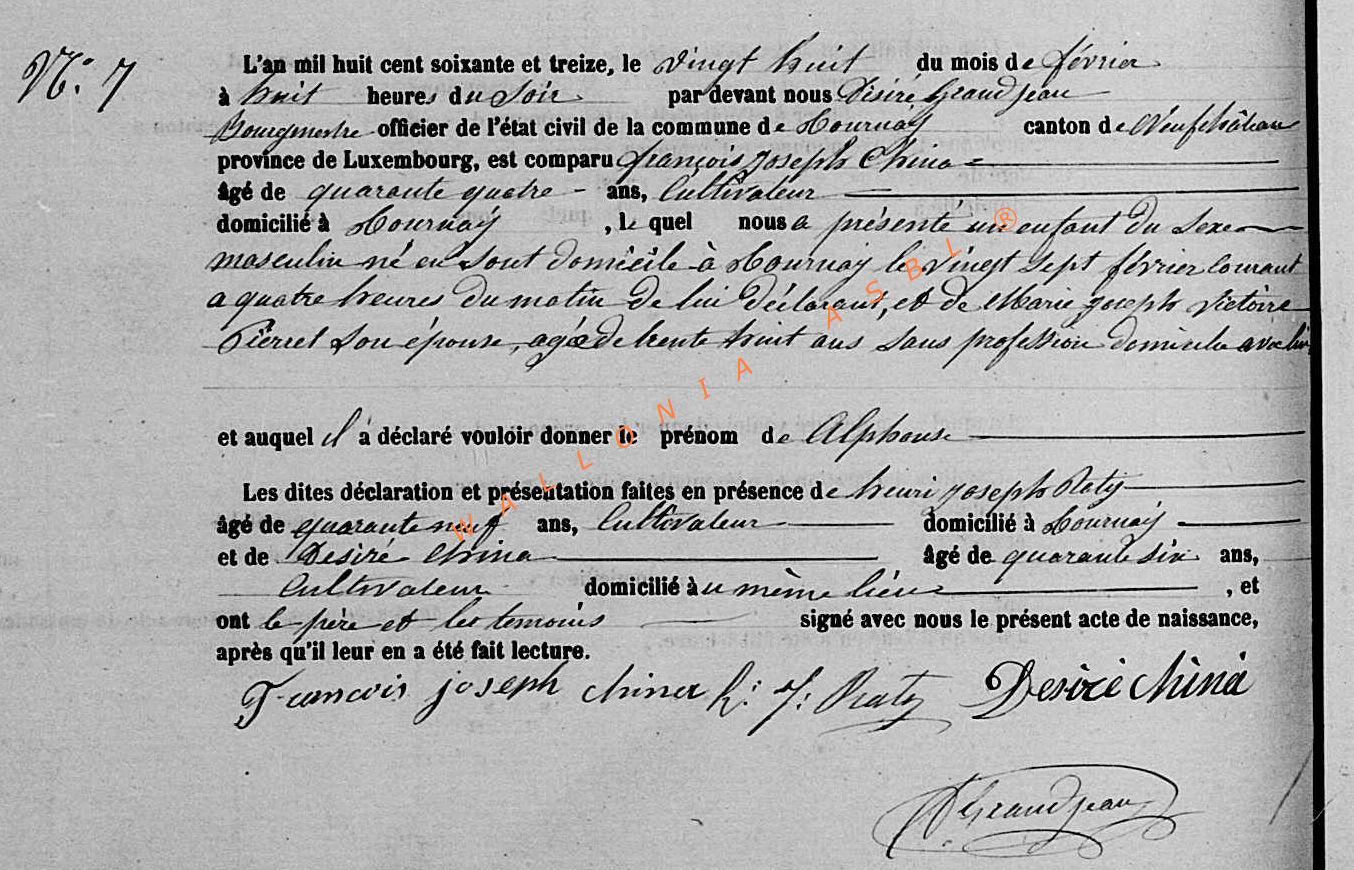 N.° 7
L'an mil huit cent soixante et treize, le vingt huit du mois de février
à huit heures du soir par devant nous Désiré Grandjean
Bourgmestre officier de l'état civil de la commune de Tournay canton de Neufchâteau
province de Luxembourg, est comparu françois joseph China
âgé de quarante quatre ans, Cultivateur
domicilié à Tournay , le quel nous a présenté un enfant du sexe
masculin né en sont domicile à Tournay le vingt sept février courant
a quatre heures du matin de lui déclarant, et de Marie joseph victoire
Pierret son épouse, agée de trente huit ans sans profession domicilée avec lui
et auquel il à déclaré vouloir donner le prénom de Alphonse
Les dites déclaration et présentation faites en présence de henri joseph Raty
âgé de quarante neuf ans, Cultivateur domicilié à Tournay
et de Desiré China âgé de quarante six ans,
Cultivateur domicilié àu même lieu , et
ont le père et les temoins signé avec nous le présent acte de naissance,
après qu'il leur en a été fait lecture.
François joseph china h: j: Raty Desiré china
D Grandjean
WALLONIA ASBL ®